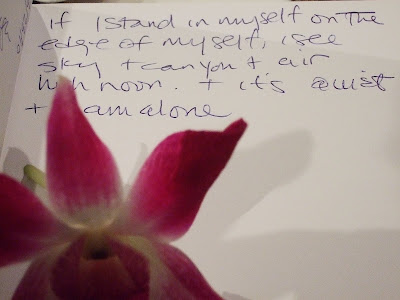 If I stand in myself on the
edge of myself, I see
sky + canyon + air
high noon. + it's quiet
+ am alone